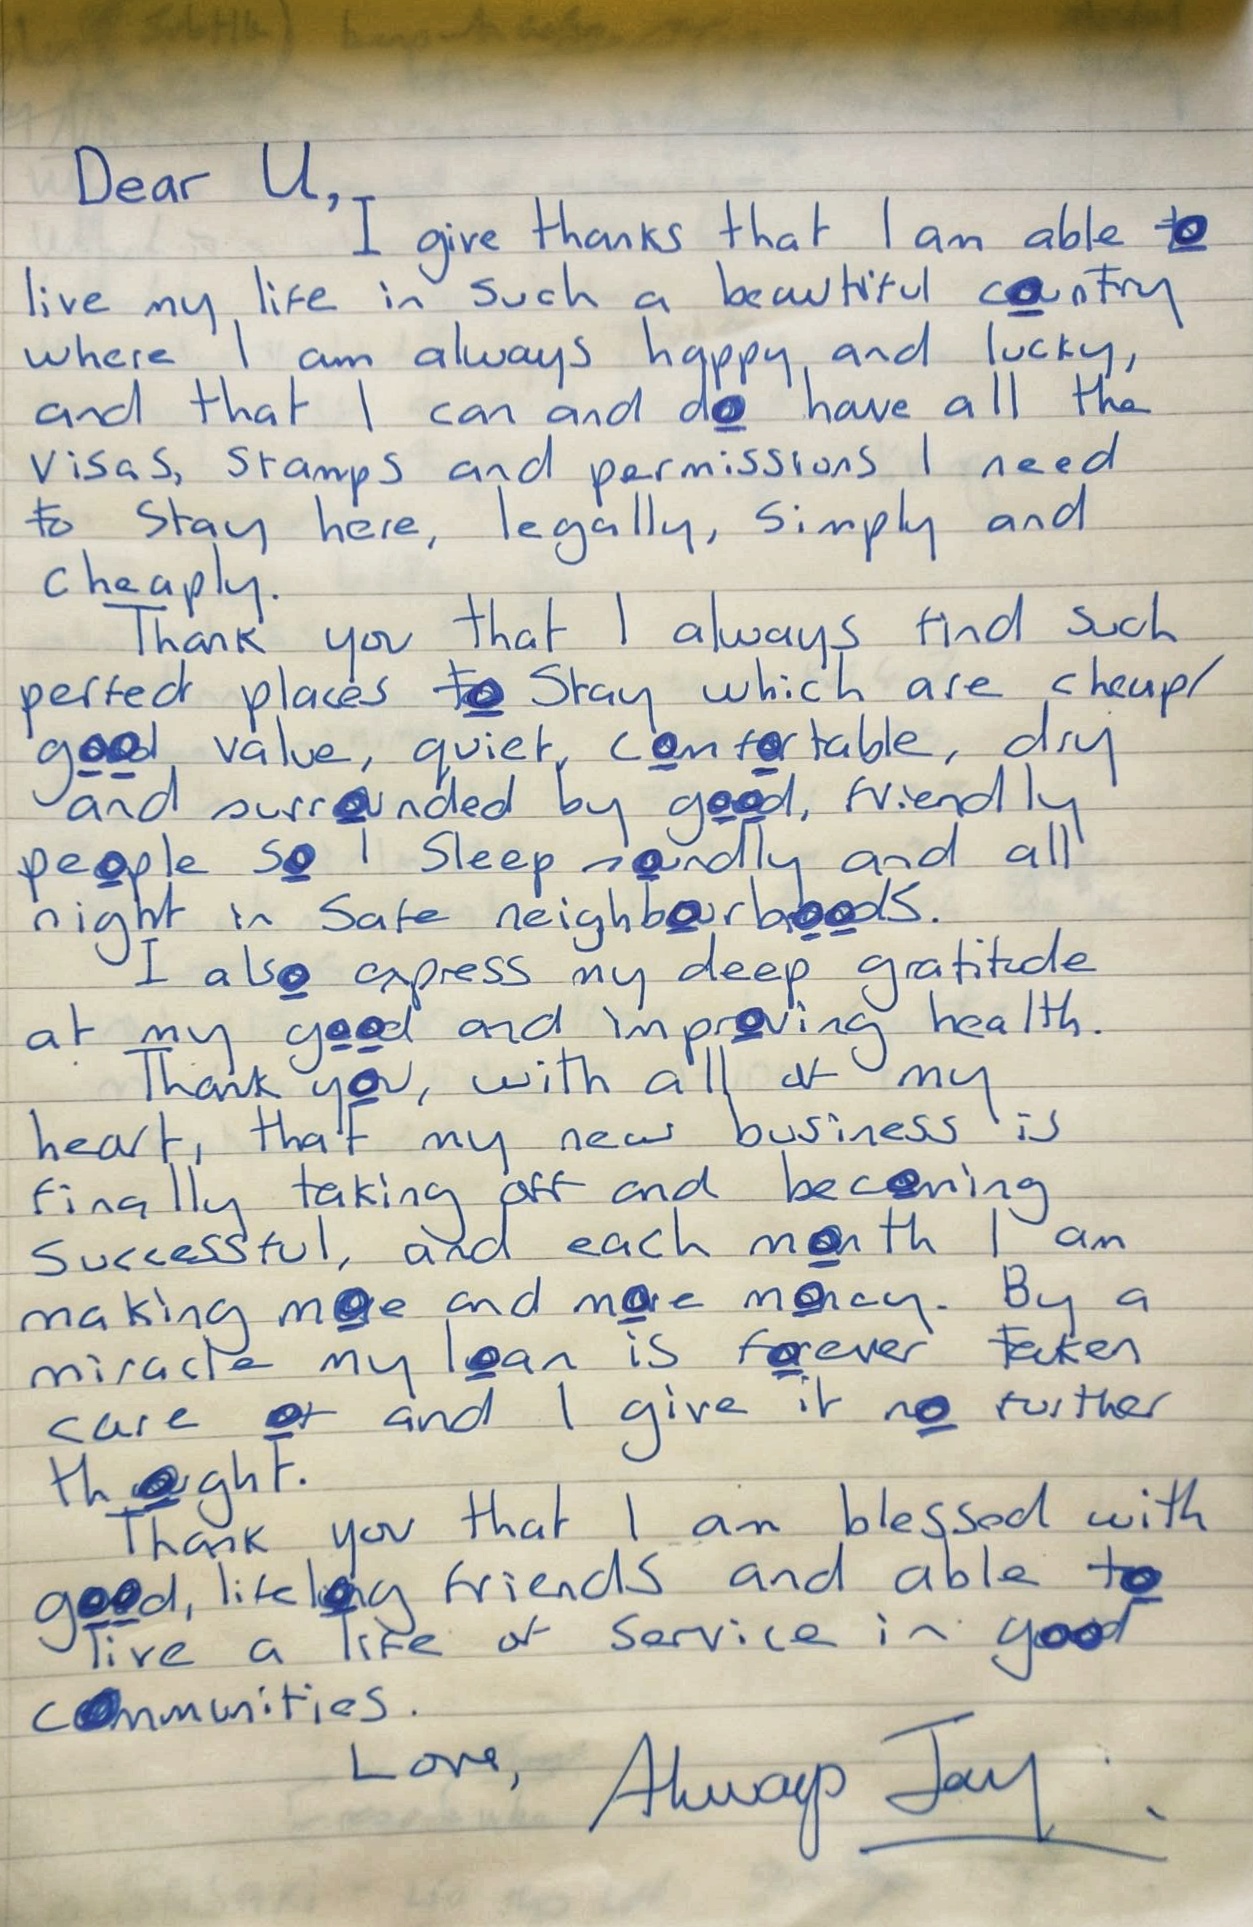 Dear U,
I give thanks that I am able to
live my life in such a beautiful country
where I am always happy and lucky,
and that I can and do have all the
visas, stamps and permissions I need
to stay here, legally, simply and
cheaply.
Thank you that I always find such
perfect places to stay which are cheap/
good value, quiet, comfortable, dry
and surrounded by good, friendly
people so I sleep soundly and all
night in safe neighbourhoods.
I also express my deep gratitude
at my good and improving health.
Thank you, with all of my
heart, that my new business is
finally taking off and becoming
successful, and each month I am
making more and more money. By a
miracle my loan is forever taken
care of and I give it no further
thought.
Thank you that I am blessed with
good, lifelong friends and able to
live a life of service in good
communities.
Love, Always Jay